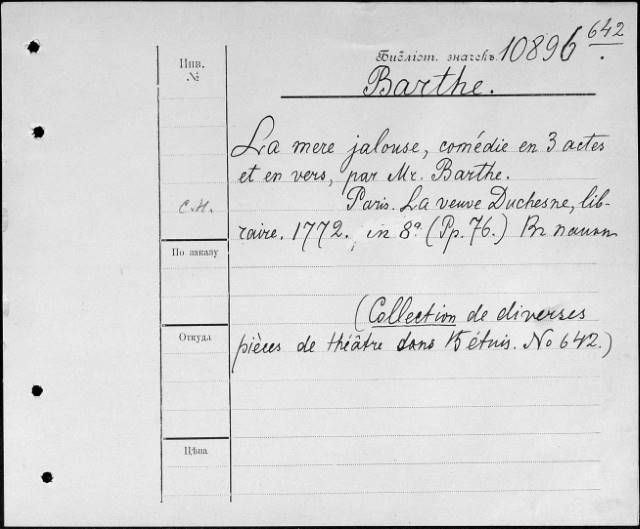 Инв.
№
Библіот. значекъ 10896 642
Barthe.
La mere jalouse, comédie en 3 actes
et en vers, par Mr. Barthe.
С.Н.
Paris. La veuve Duchesne, lib-
raire. 1772. in 8º. (Pp. 76.)
По заказу
(Collection de diverses
Откуда
pièces de théâtre dans 15 étuis. No 642.)
Цѣна